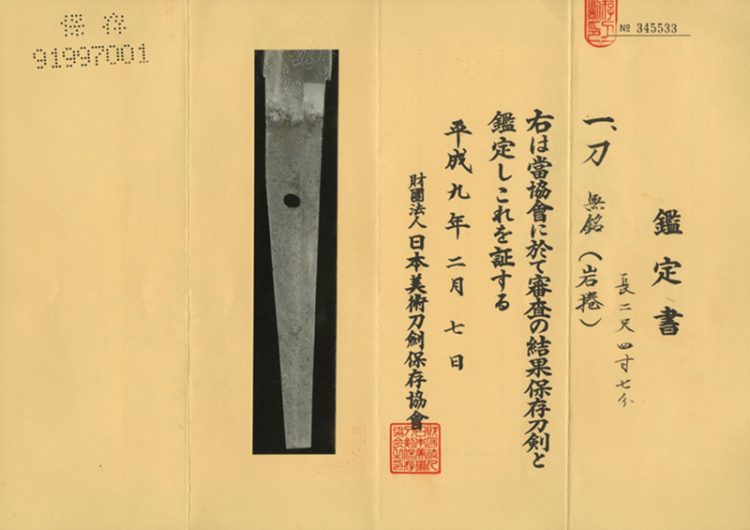 № 345533
鑑定書
一、刀 無銘(岩捲)
長二尺四寸七分
右は當協會に於て審査の結果保存刀剣と
鑑定しこれを証する
平成九年二月七日
財團法人日本美術刀剣保存協會
保存
91997001